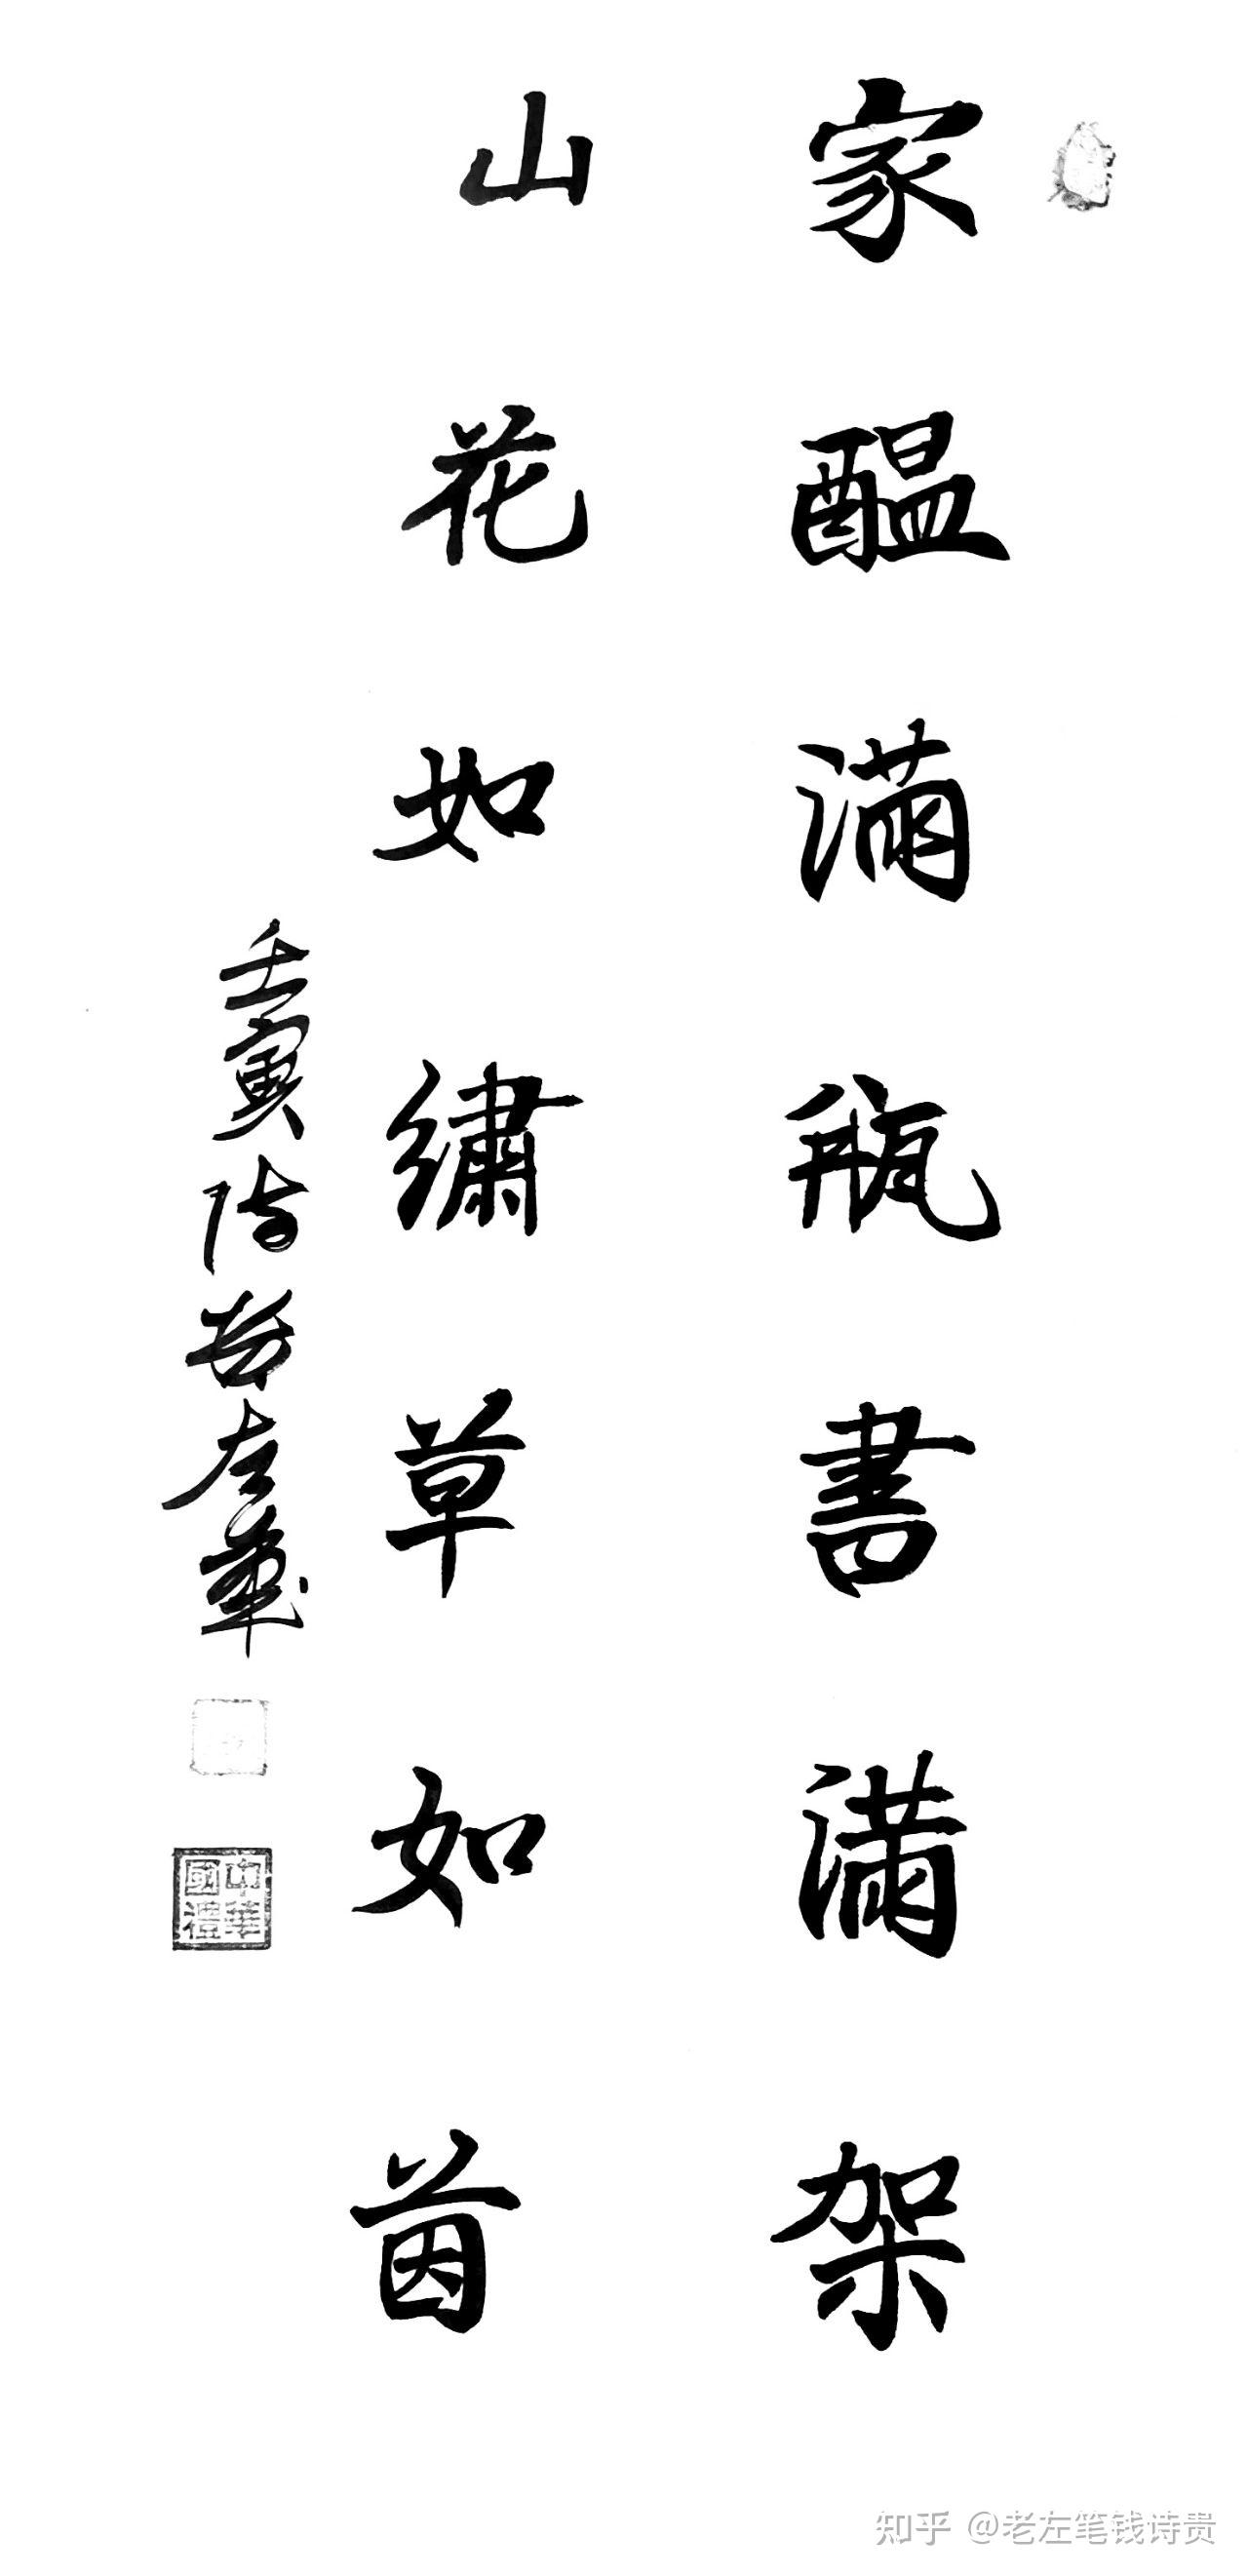 家醞滿瓶書滿架
山花如繡草如茵
壬寅 左筆
中華國禮
知乎 @老左笔钱诗贵